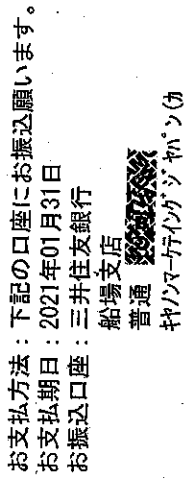 お支払方法：下記の口座にお振込願います。
お支払期日：2021年01月31日
お振込口座：三井住友銀行
船場支店
普通
キヤノンマーケティングジヤパン(カ